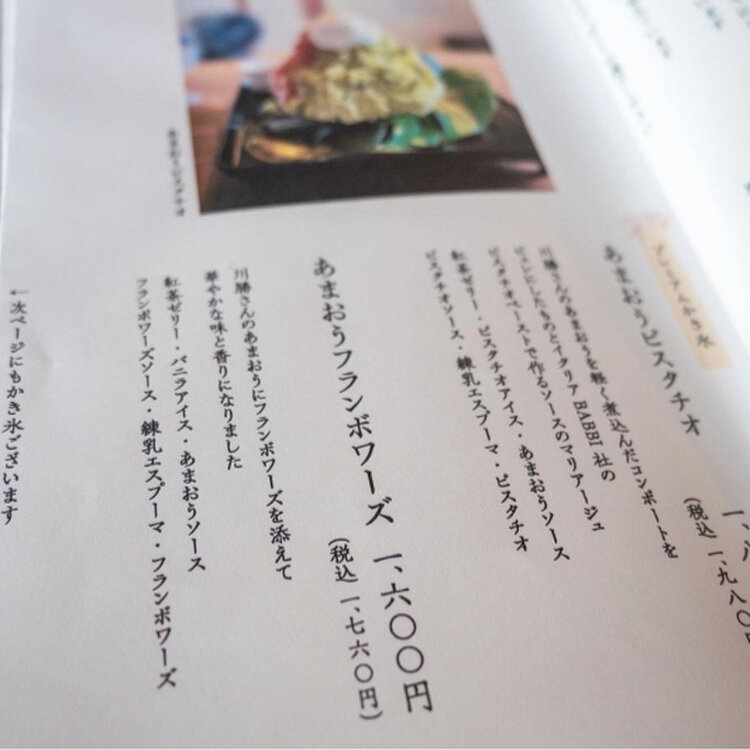 プレミアムかき氷
あまおうピスタチオ
一、八
(税込 一、九八〇円
川勝さんのあまおうを軽く煮込んだコンポートを
ピュレにしたものとイタリア BABBI 社の
ピスタチオペーストで作るソースのマリアージュ
紅茶ゼリー・ピスタチオアイス・あまおうソース
ピスタチオソース・練乳エスプーマ・ピスタチオ
あまおうフランボワーズ 一、六〇〇円
(税込 一、七六〇円)
川勝さんのあまおうにフランボワーズを添えて
華やかな味と香りになりました
紅茶ゼリー・バニラアイス・あまおうソース
フランボワーズソース・練乳エスプーマ・フランボワーズ
あまおうピスタチオ
← 次ページにもかき氷ございます